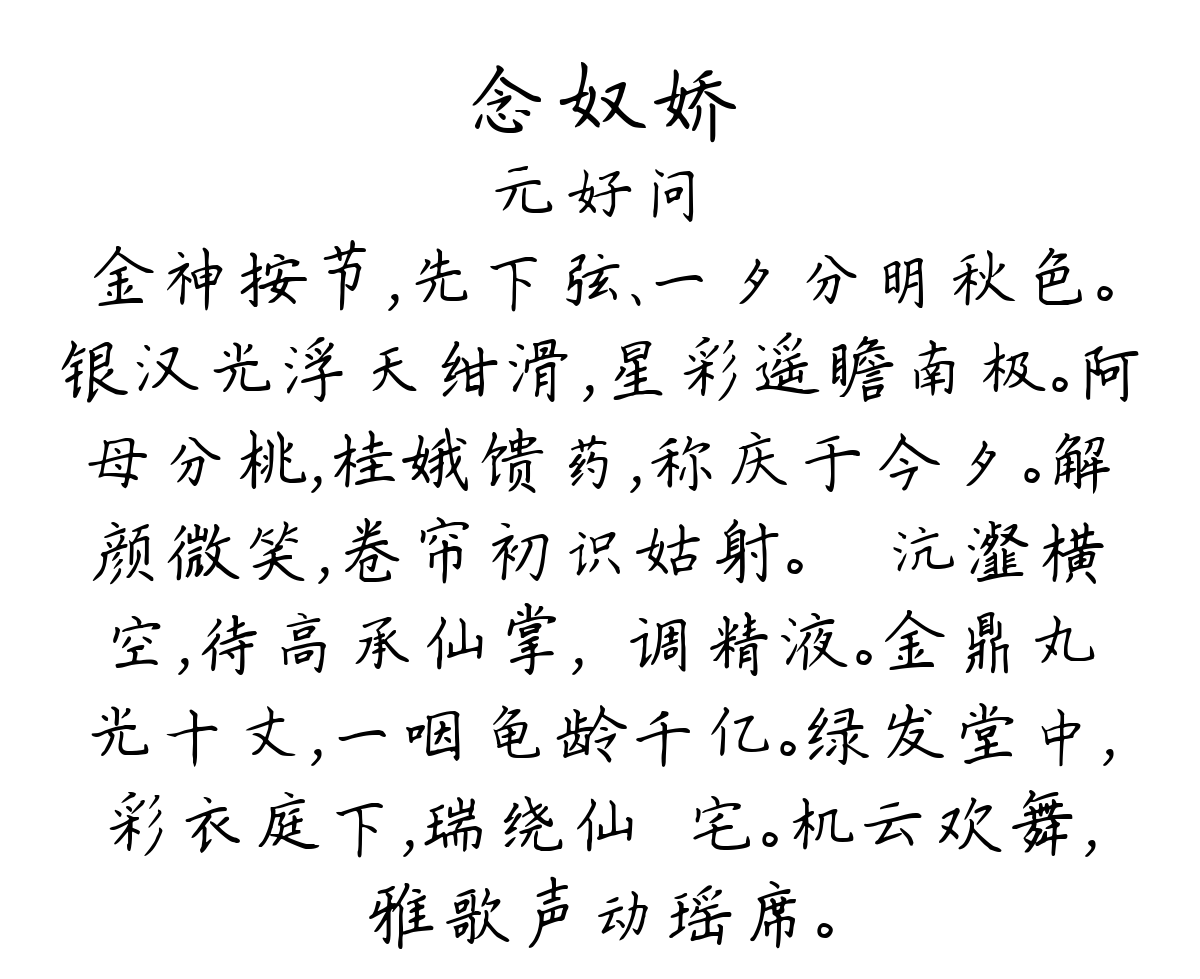 念奴娇
元好问
金神按节,先下弦、一夕分明秋色。
银汉光浮天绀滑,星彩遥瞻南极。阿
母分桃,桂娥馈药,称庆于今夕。解
颜微笑,卷帘初识姑射。 沆瀣横
空,待高承仙掌, 调精液。金鼎丸
光十丈,一咽龟龄千亿。绿发堂中,
彩衣庭下,瑞绕仙 宅。机云欢舞,
雅歌声动瑶席。